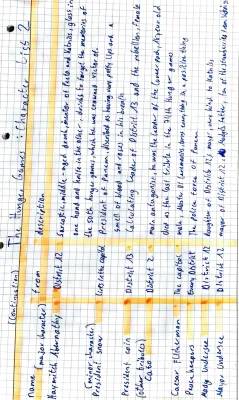 (continuation) The Hunger Games: Character List 2
Name From Description
(major character)
Haymitch Abernathy District 12 Sarcastic, middle-aged drunk, mentor of Peeta and Katniss, glass in
one hand and knife in the other - drinks to forget the memories of
the 50th hunger games, which he was crowned victor of.
(minor character)
President Snow lives in the capitol President of Panem, described as having very puffy lips and a
smell of blood and roses in his breath
President coin District 13 Calculating leader of District 13 and the rebellion, female
(other tributes)
Cato District 2 main antagonist, he was the leader of the career pack, 18 year old
died as the last tribute in the 74th Hunger games
Caesar Flickerman The capitol male, hosts
Peacekeepers Every District The police force of Panem
Madge Undersee District 12 daughter of District 12's mayor, was kind to Katniss
Mayor Undersee District 12 mayor of District 12, Madge's father